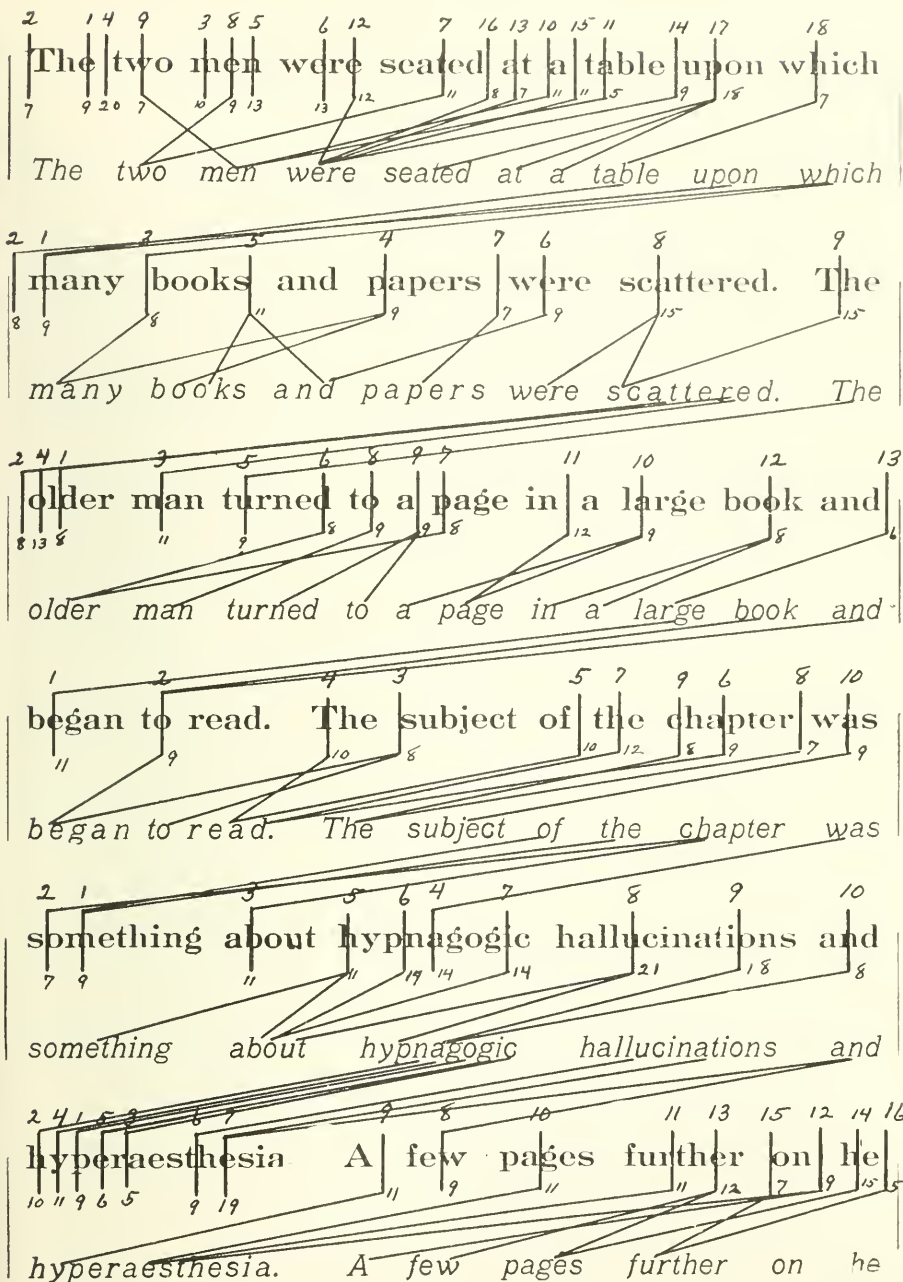 2 1 4 9 3 8 5 6 12 7 16 13 10 15 11 14 17 18
The two men were seated at a table upon which
7 9 20 7 10 9 13 13 12 11 8 7 11 11 5 9 18 7
The two men were seated at a table upon which
2 1 3 5 4 7 6 8 9
many books and papers were scattered. The
8 9 8 11 9 7 9 15 15
many books and papers were scattered. The
2 4 1 3 5 6 8 9 7 11 10 12 13
older man turned to a page in a large book and
8 13 8 11 9 8 9 9 8 12 9 8 6
older man turned to a page in a large book and
1 2 4 3 5 7 9 6 8 10
began to read. The subject of the chapter was
11 9 10 8 10 12 8 9 7 9
began to read. The subject of the chapter was
2 1 3 5 6 4 7 8 9 10
something about hypnagogic hallucinations and
7 9 11 11 19 14 14 21 18 8
something about hypnagogic hallucinations and
2 4 1 5 3 6 7 9 8 10 11 13 15 12 14 16
hyperaesthesia A few pages further on he
10 11 9 6 5 9 19 11 9 11 11 12 7 9 15 5
hyperaesthesia. A few pages further on he